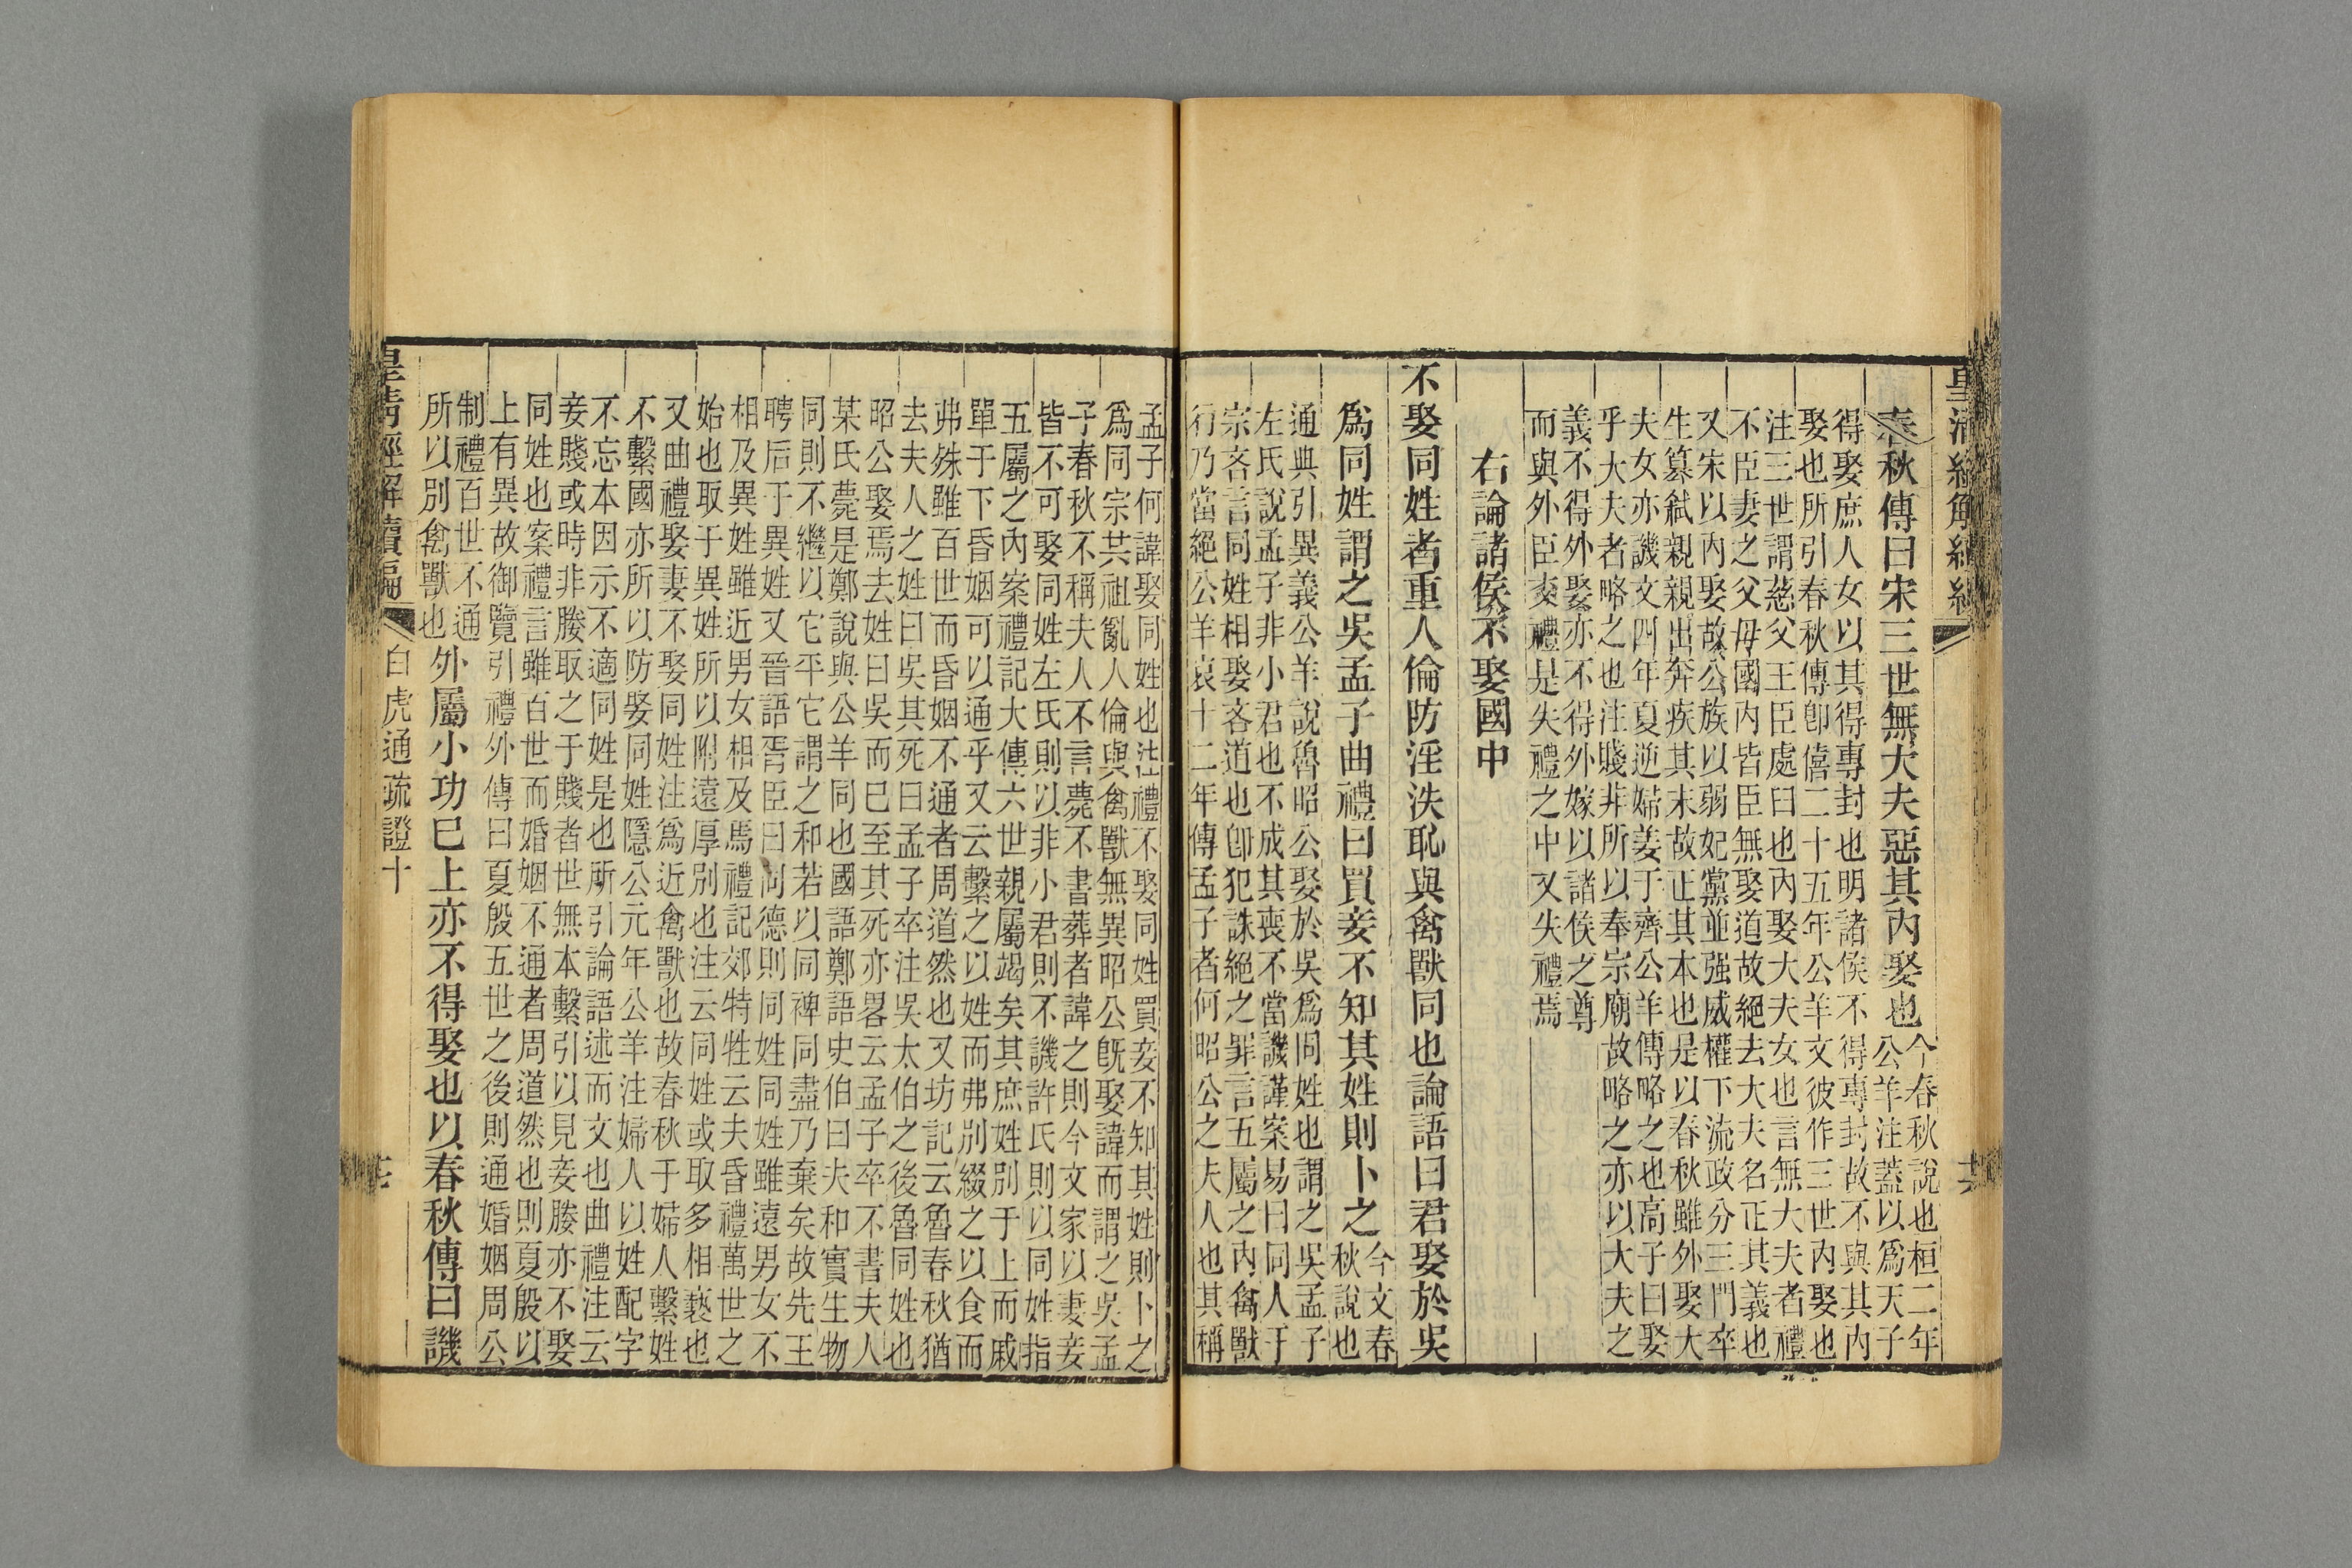 皇清經解續編
春秋傳曰宋三世無大夫惡其內娶也今春秋說也桓二年
公羊注蓋以爲天子
得娶庶人女以其得專封也明諸侯不得專封故不與其內
娶也所引春秋傳卽僖二十五年公羊文彼作三世內娶也
注三世謂慈父王臣處臼也內娶大夫女也言無大夫者禮
不臣妻之父母國內皆臣無娶道故絕去大夫名正其義也
又宋以內娶故公族以弱妃黨並强威權下流政分三門卒
生篡弒親親出奔疾其末故正其本也是以春秋雖外娶大
夫女亦譏文四年夏逆婦姜于齊公羊傳略之也高子曰娶
乎大夫者略之也注賤非所以奉宗廟故略之亦以大夫之
義不得外娶亦不得外嫁以諸侯之尊
而與外臣交禮是失禮之中又失禮焉
右論諸侯不娶國中
不娶同姓者重人倫防淫泆恥與禽獸同也論語曰君娶於吳
爲同姓謂之吳孟子曲禮曰買妾不知其姓則卜之今文春
秋說也
通典引異義公羊說魯昭公娶於吳爲同姓也謂之吳孟子
左氏說孟子非小君也不成其喪不當譏謹案易曰同人于
宗吝言同姓相娶吝道也卽犯誅絕之罪言五屬之內禽獸
行乃當絕公羊哀十二年傳孟子者何昭公之夫人也其稱
孟子何諱娶同姓也注禮不娶同姓買妾不知其姓則卜之
爲同宗共祖亂人倫與禽獸無異昭公旣娶諱而謂之吳孟
子春秋不稱夫人不言薨不書葬者諱之則今文家以妻妾
皆不可娶同姓左氏則以非小君則不譏許氏則以同姓指
五屬之內案禮記大傳六世親屬竭矣其庶姓別于上而戚
單于下昏姻可以通乎又云繫之以姓而弗別綴之以食而
弗殊雖百世而昏姻不通者周道然也又坊記云魯春秋猶
去夫人之姓曰吳其死曰孟子卒注吳太伯之後魯同姓也
昭公娶焉去姓曰吳而已至其死亦畧云孟子卒不書夫人
某氏薨是鄭說與公羊同也國語鄭語史伯曰夫和實生物
同則不繼以它平它謂之和若以同裨同盡乃棄矣故先王
聘后于異姓又晉語胥臣曰同德則同姓同姓雖遠男女不
相及異姓雖近男女相及焉禮記郊特牲云夫昏禮萬世之
始也取于異姓所以附遠厚別也注云同姓或取多相褻也
又曲禮娶妻不娶同姓注爲近禽獸也故春秋于婦人繫姓
不繫國亦所以防娶同姓隱公元年公羊注婦人以姓配字
不忘本因示不適同姓是也所引論語述而文也曲禮注云
妾賤或時非媵取之于賤者世無本繫引以見妾媵亦不娶
同姓也案禮言雖百世而婚姻不通者周道然也則夏殷以
上有異故御覽引禮外傳曰夏殷五世之後則通婚姻周公
制禮百世不通
所以別禽獸也外屬小功已上亦不得娶也以春秋傳曰譏
皇清經解續編 白虎通疏證十